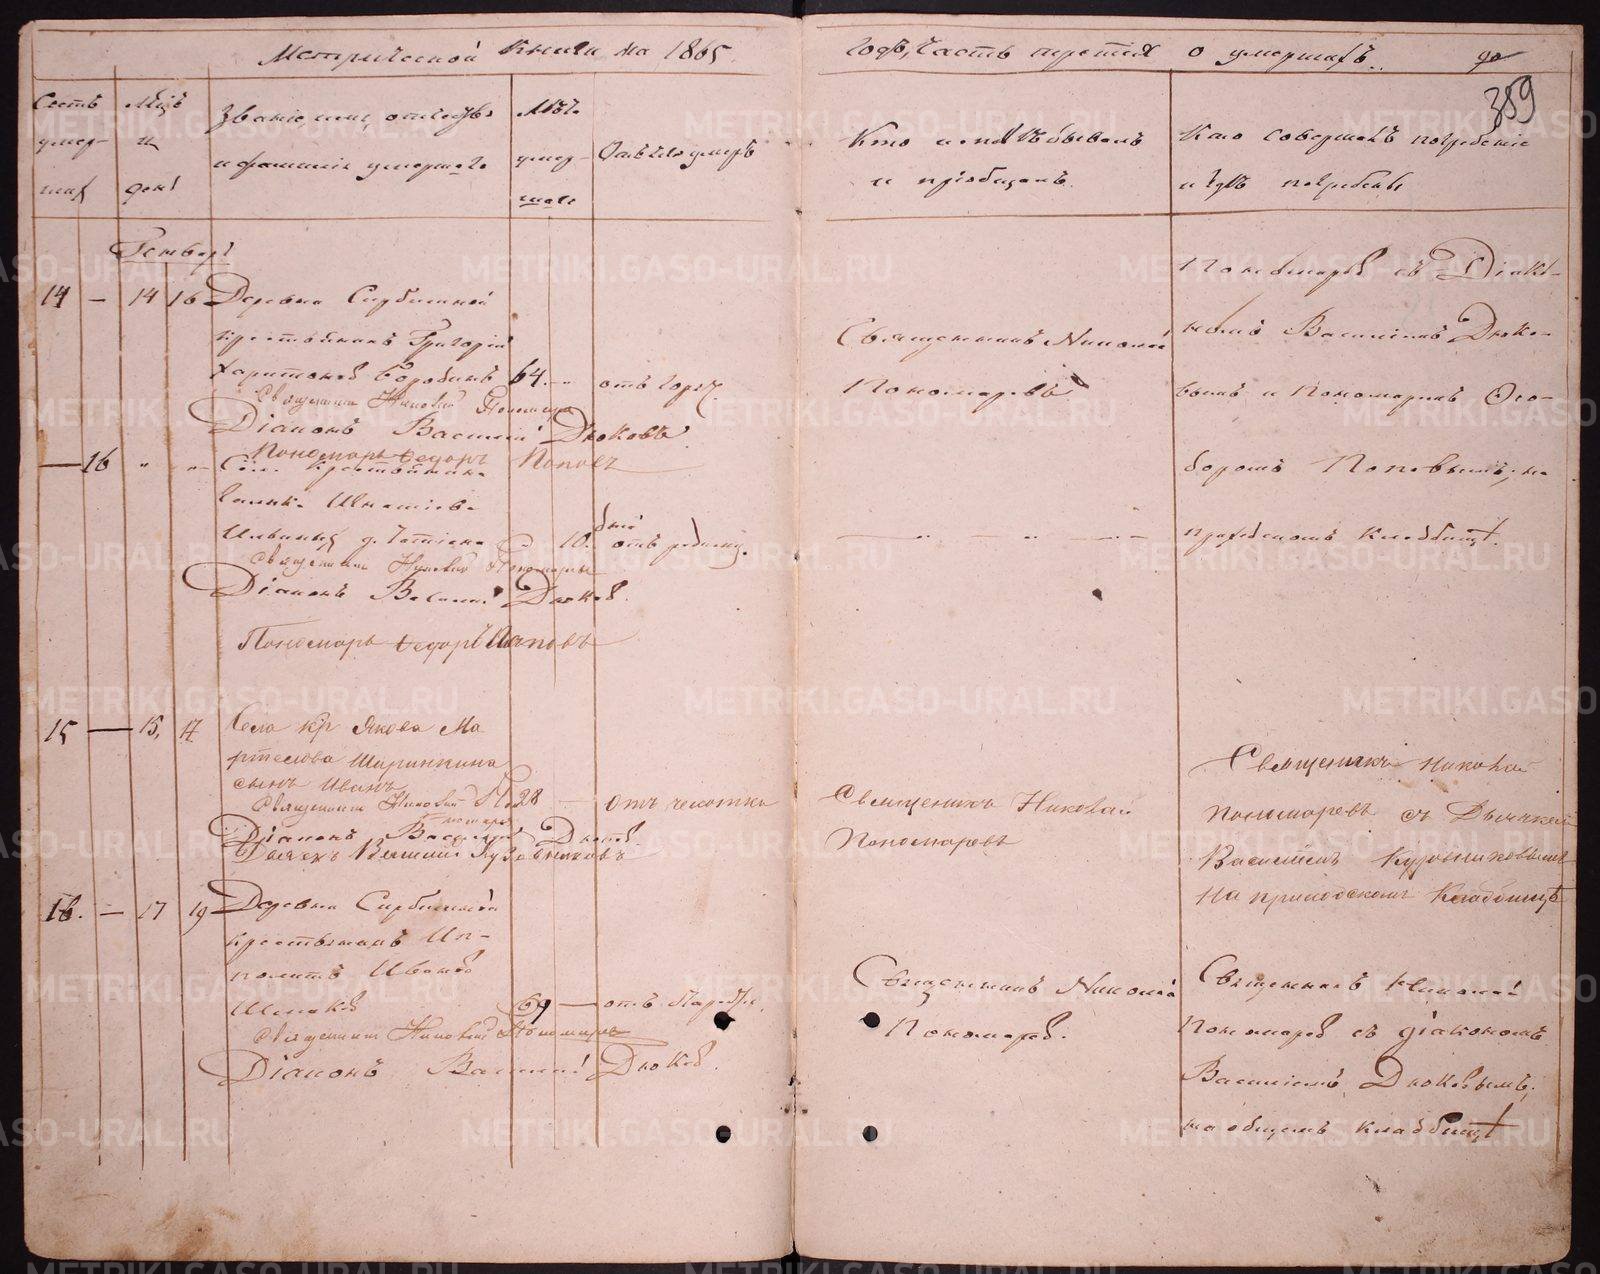 Метрической книги на 1865
годъ, часть третія о умершихъ.
389
Счетъ умер-
шихъ
Мѣцъ и
дни
Званіе, имя, отчество
и фамилія умершаго
Лѣта
умер-
шаго
Отъ чего умеръ
Кто исповѣдывалъ
и пріобщалъ.
Кто совершалъ погребеніе
и гдѣ погребены
Генварь
14 — 14 16 Деревни Сербишиной
крестьянинъ Григорій
Харитоновъ Бородинъ 64. отъ горяч.
Священникъ Николай Пономаревъ
Діаконъ Василій Дюковъ.
Пономарь Ѳедоръ Поповъ
Священникъ Николай
Пономаревъ
Пономаревъ съ Діако-
номъ Василіемъ Дюко-
вымъ и Пономаремъ Ѳео-
доромъ Поповымъ, на
приходскомъ кладбищѣ.
— 16 " " Села крестьянина
Игнатіева
10. дней
отъ родимц.
Священникъ Николай Пономаревъ
Діаконъ Василій Дюковъ.
Пономарь Ѳедоръ Поповъ
15 — 15, 17 Села кр Якова Ма
ртемова Ширинкина
сынъ Иванъ 28 — отъ чахотки
Священникъ Николай Пономаревъ
Діаконъ Василій Дюковъ
Дьячекъ Василій Кузовниковъ
Священникъ Николай
Пономаревъ
Священникъ Николай
Пономаревъ съ Дьячкомъ
Василіемъ Кузовниковымъ
На приходскомъ Кладбищѣ
16. — 17 19 Деревни Сербишиной
крестьянинъ Ип-
политъ Ивановъ
69 —
Священникъ Николай Пономаревъ
Діаконъ Василій Дюковъ.
Священникъ Николай
Пономаревъ.
Священникъ Николай
Пономаревъ съ діакономъ
Василіемъ Дюковымъ,
на общемъ кладбищѣ
METRIKI.GASO-URAL.RU